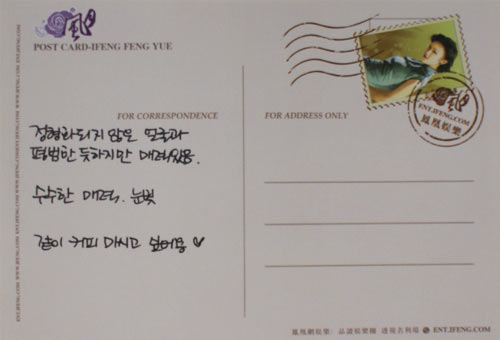 風
POST CARD-IFENG FENG YUE
FOR CORRESPONDENCE
정형화되지 않은 얼굴과
평범한 듯하지만 매력있음.
수수한 매력. 눈빛
같이 커피 마시고 싶어용 ♡
FOR ADDRESS ONLY
ENT.IFENG.COM
鳳凰娛樂
鳳凰網娛樂: 品證娛樂圈 透視名利場 ENT.IFENG.COM